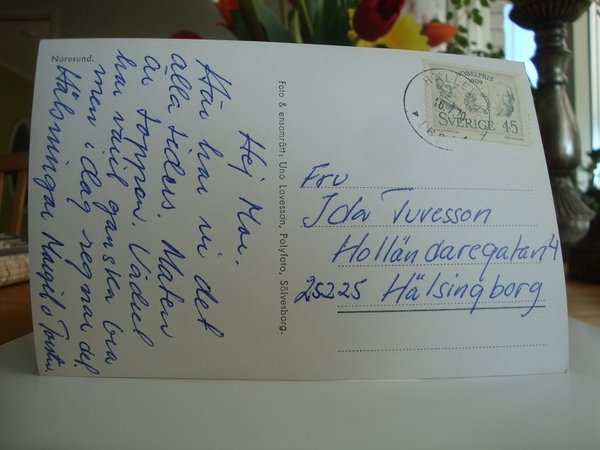 Noresund.
Hej Mor.
Här har vi det
alla tiders. Maten
är toppen. Vädret
har varit ganska bra
men i dag regnar det.
Hälsningar Margit o Torsten
Foto & ensamrätt: Uno Lovesson, Polyfoto, Sölvesborg.
NOBELPRIS
1909
SVERIGE 45
Fru
Ida Tuvesson
Holländaregatan 4
25225 Hälsingborg